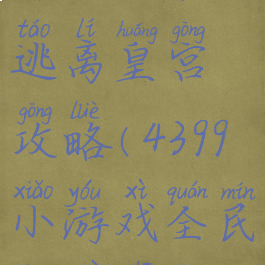 táo lí huáng gōng
逃离皇宫
gōng lüè
攻略(4399
xiǎo yóu xì quán mín
小游戏全民